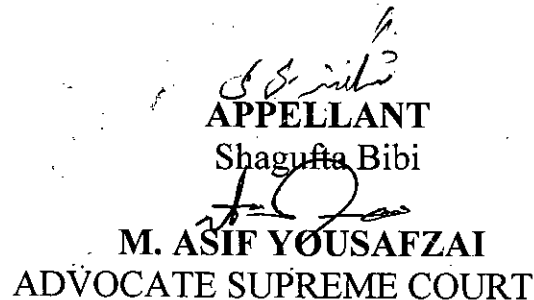 APPELLANT
Shagufta Bibi
M. ASIF YOUSAFZAI
ADVOCATE SUPREME COURT